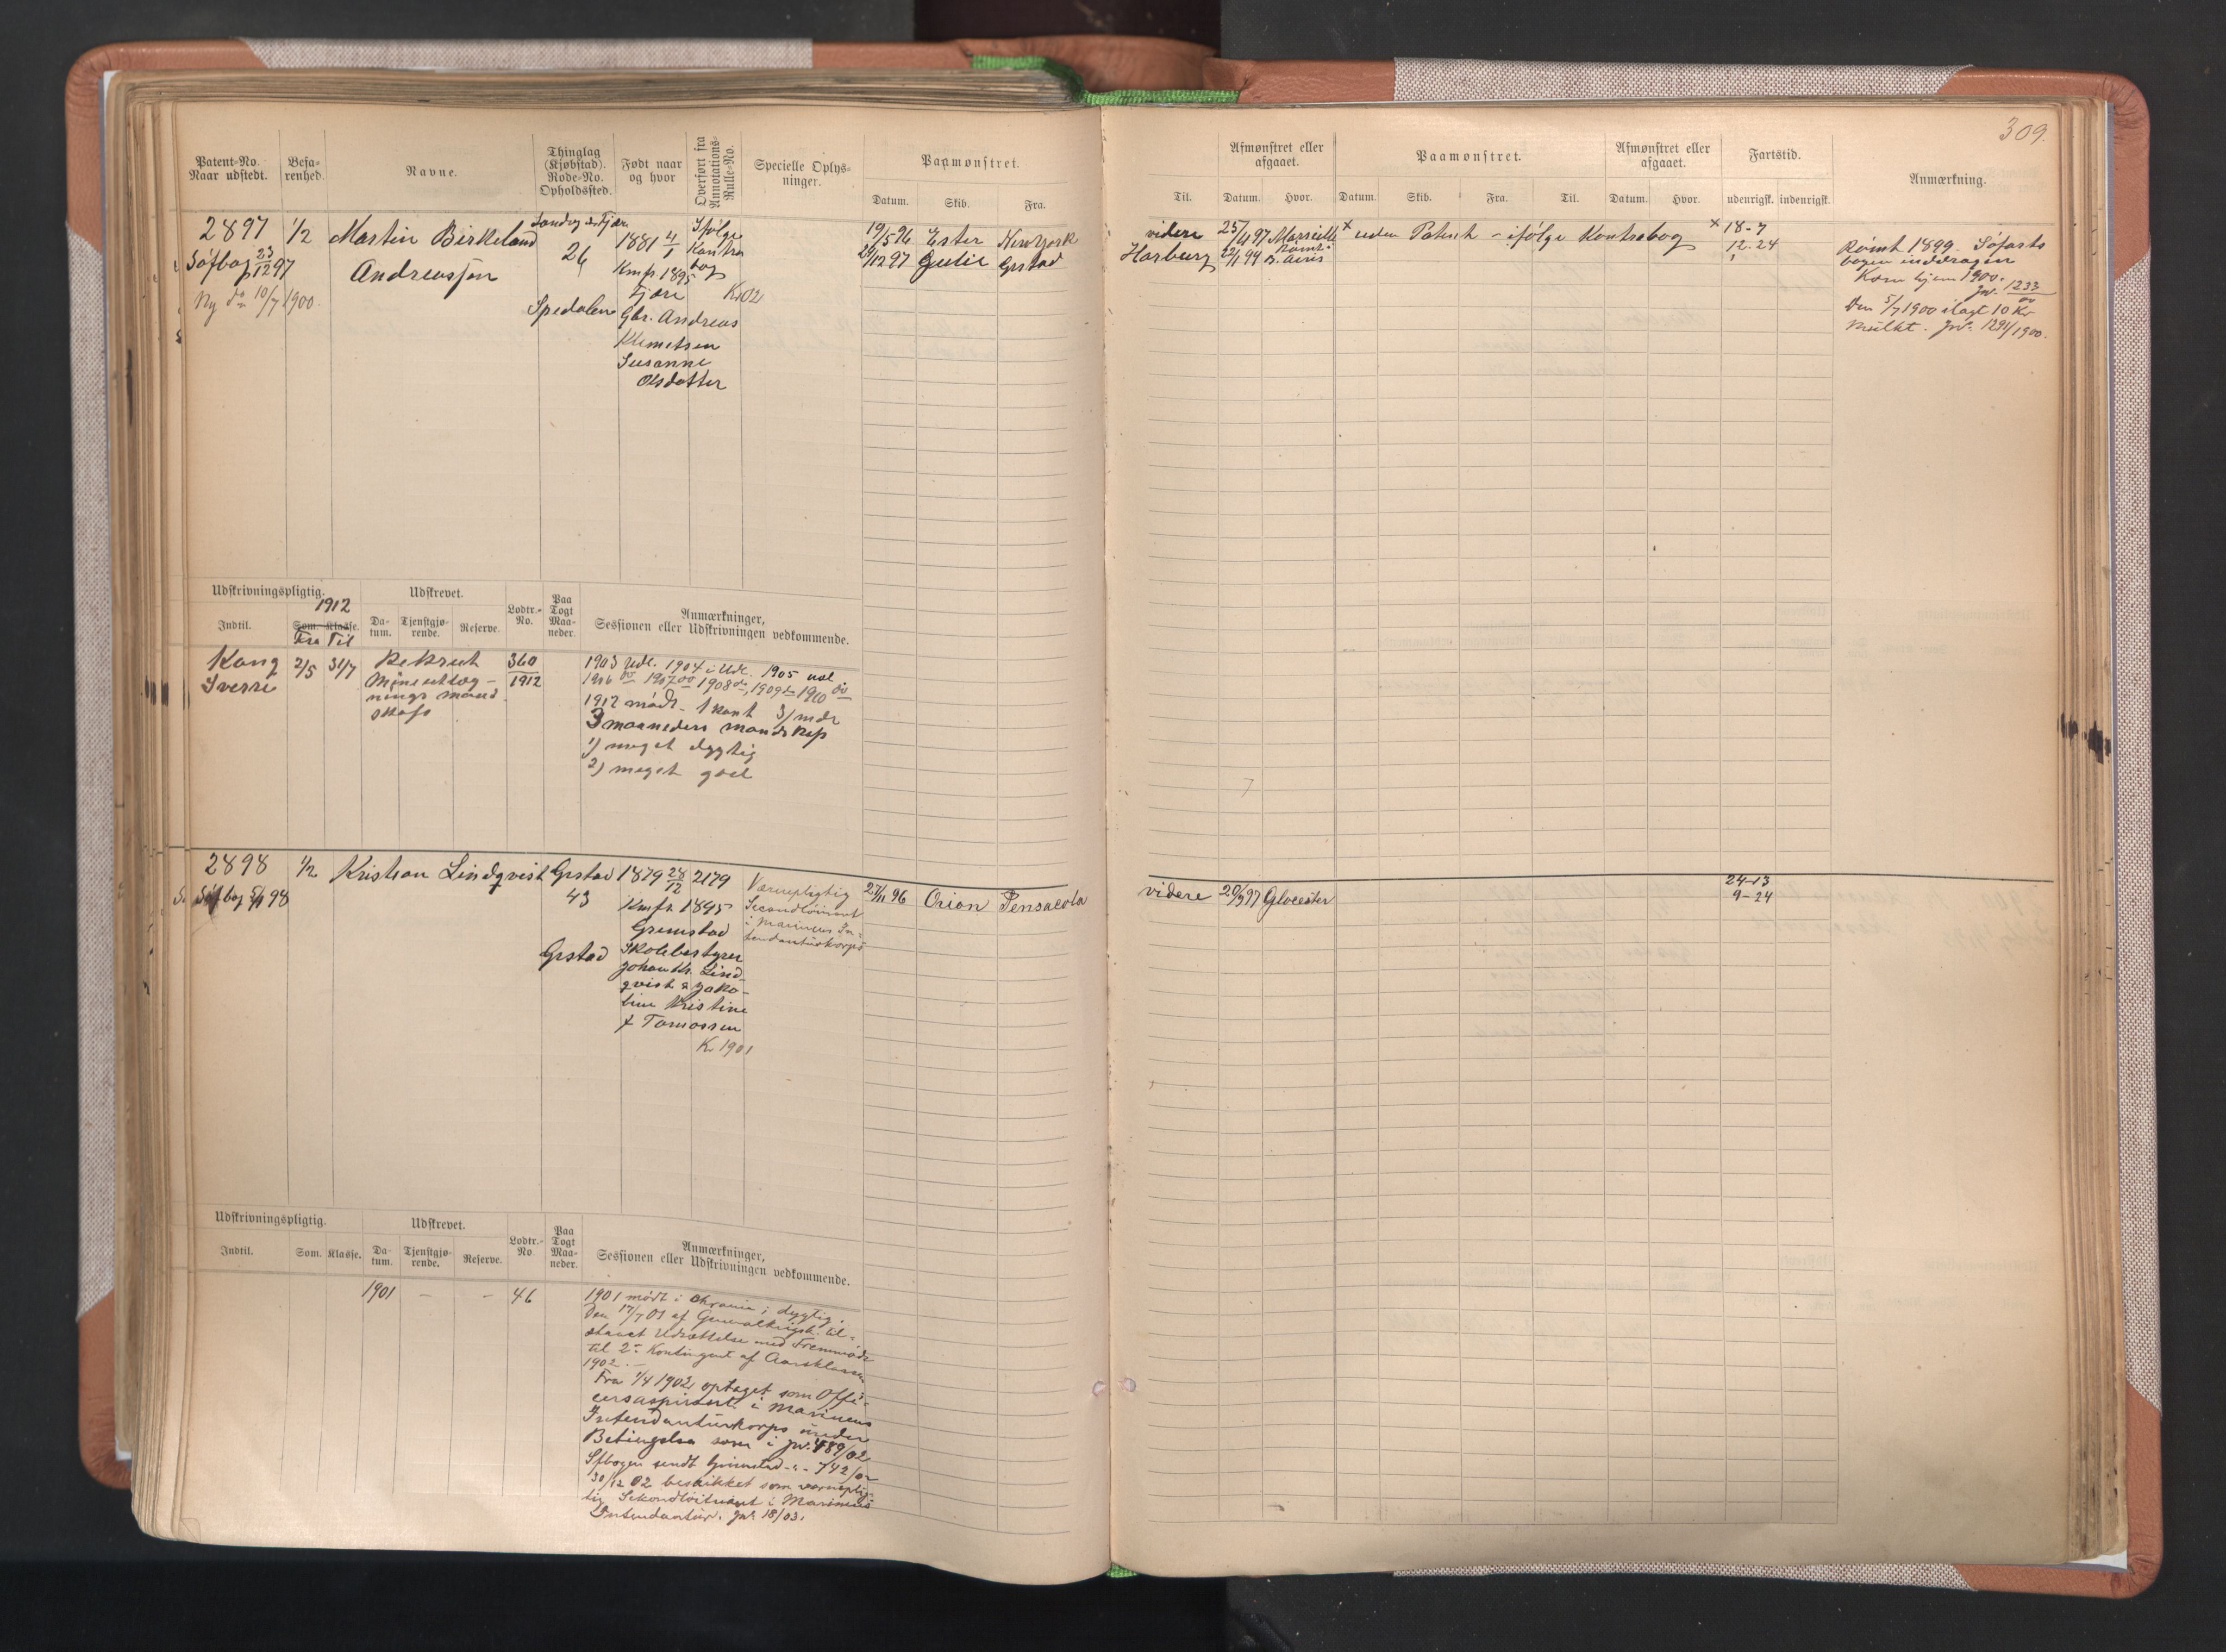 309.
Patent-No. Naar udstedt.
Befarenhed.
Navne.
Thinglag (Kjøbstad). Rode-No. Opholdssted.
Født naar og hvor
Overført fra Annotations-Rulle-No.
Specielle Oplysninger.
Paamønstret.
Datum. Skib. Fra.
Til.
Afmønstret eller afgaaet.
Datum. Hvor.
Paamønstret.
Datum. Skib. Fra. Til.
Afmønstret eller afgaaet.
Datum. Hvor.
Fartstid.
udenrigsk. indenrigsk.
Anmærkning.
2897
Søfbog 23/12 97
Ny do 10/7 1900.
1/2
Martin Birkeland
Andreassen
26
Spedalen
1881 4/1
Kmfr. 1895
Fjære
Gbr. Andreas
Klemetsen
Susanne
Olsdatter
Ifølge
Kontra
bog
K.02
19/5 96 Ester New York
24/12 97 Grstad
videre 25/4 97 Marseille
Harburg B. Aires
x uden Patent - ifølge Kontrabog x
18-7
12-24
Rømt 1899. Søfarts
bogen inddragen
Kom hjem 1900.
Jnr. 1233/00
Den 5/7 1900 ilagt 10 Kr
Mulkt. Jnr. 1291/1900.
Udskrivningspligtig.
1912
Indtil. Som. Klasse.
Fra Til
Udskrevet.
Datum. Tjenstgjørende. Reserve.
Lodtr.-No.
Paa Togt Maaneder.
Anmærkninger,
Sessionen eller Udskrivningen vedkommende.
Kong
Sverre
2/5 31/7
Rekrut
360
1912
1903 Udl. 1904 i Udl. 1905 udl
1906 do 1907 do 1908 do, 1909 do 1910 do
1912 mødt - 1 Kont 3/mdr
3 maaneders mandskap
1) meget dygtig
2) meget god
2898
1/2
Kristian Lindqvist
Grstad
43
Grstad
1879 28/12
Kmfr. 1895
Grimstad
Skolebestyrer
Johan Kr. Lind-
qvist & Jako-
bine Kristine
f Tomassen
K. 1901
2179
Værnepligtig
Secondløitnant
i Marinens In-
tendanturkorps
27/11 96 Orion Pensacola
videre 20/9 97 Glocester
24-13
9-24
Udskrivningspligtig.
Indtil. Som. Klasse.
Udskrevet.
Datum. Tjenstgjørende. Reserve.
Lodtr.-No
Paa Togt Maaneder.
Anmærkninger,
Sessionen eller Udskrivningen vedkommende.
1901 - - 46
1901 mødt i Chrania; dygtig.
Den 17/7 01 af Generalkrigsk. til-
staaet Udsættelse med Fremmøde
til 2. Kontingent af Aarsklassen
1902. -
Fra 1/4 1902 optaget som Offi-
cersaspirant i Marinens
Intendanturkorps under
Betingelse som i Jnr. 489/02
Sfbogen sendt Grimstad - 742/02
30/12 02 beskikket som værneplig-
tig Sekondløitnant i Marinens
Intendantur. Jnr. 18/03.